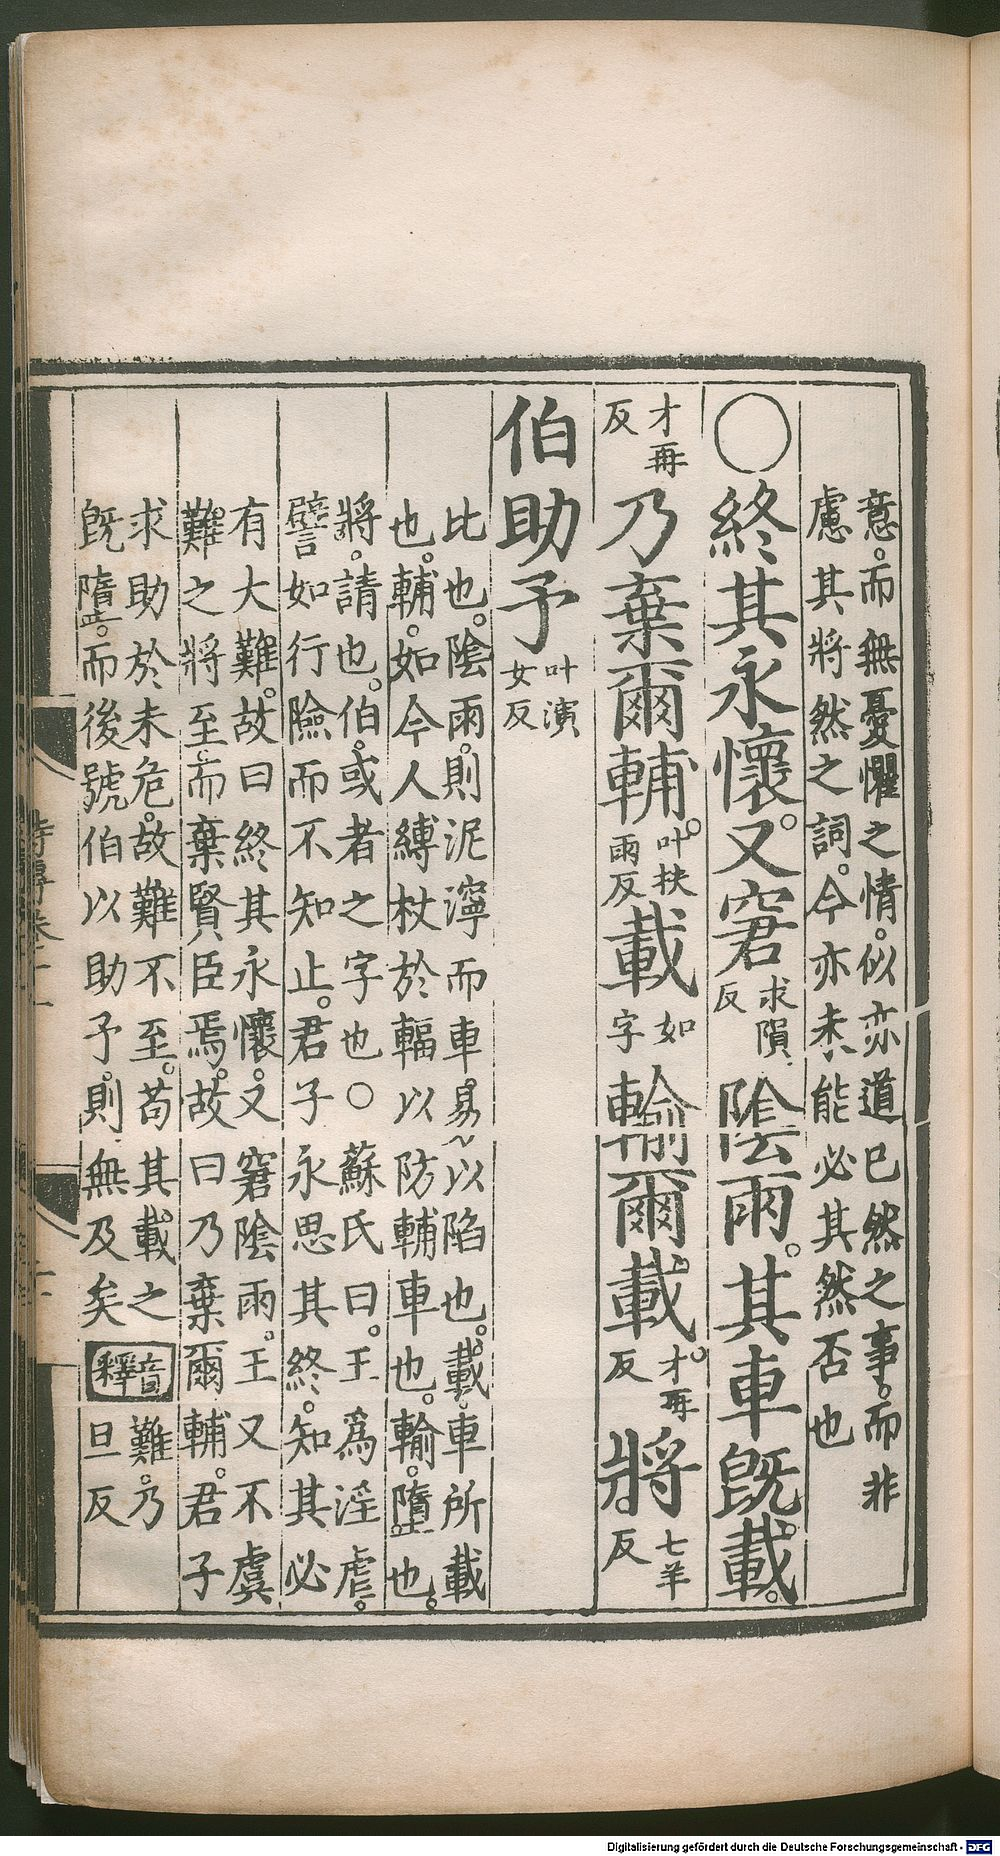 意。而無憂懼之情。似亦道已然之事。而非
慮其將然之詞。今亦未能必其然否也
○終其永懷。又窘求隕反陰雨。其車旣載。
才再反乃棄爾輔。叶扶雨反載如字輸爾載。才再反將七羊反
伯助予叶演女反
比也。陰雨。則泥濘而車易以陷也。載。車所載
也。輔。如今人縛杖於輻以防輔車也。輸。墮也。
將。請也。伯。或者之字也○蘇氏曰。王爲淫虐。
譬如行險而不知止。君子永思其終。知其必
有大難。故曰終其永懷。又窘陰雨。王又不虞
難之將至。而棄賢臣焉。故曰乃棄爾輔。君子
求助於未危。故難不至。苟其載之
旣墮。而後號伯以助予。則無及矣
音釋
難。乃
旦反
詩傳卷十一
Digitalisierung gefördert durch die Deutsche Forschungsgemeinschaft - DFG